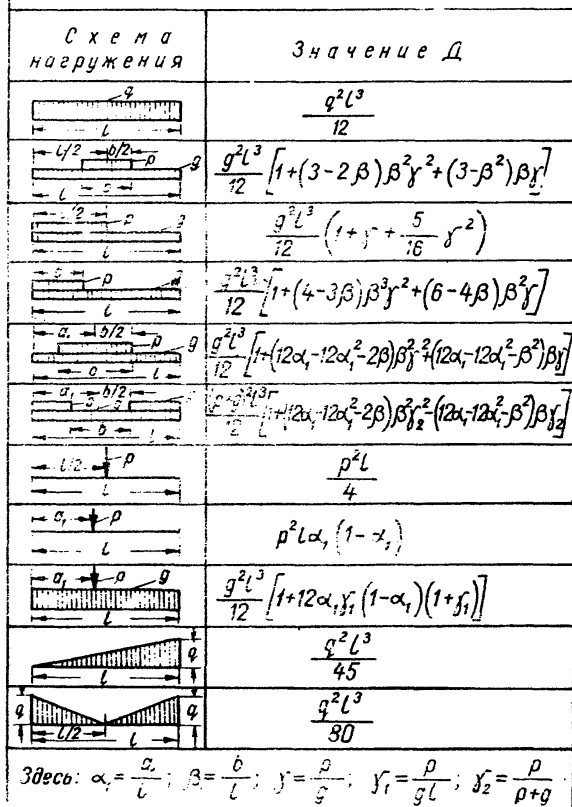 Схема нагружения
Значение Д
q
l
q²l³/12
l/2 b/2
p
g
l
g²l³/12 [1+(3-2β)β²γ²+(3-β²)βγ]
p
g
l
g²l³/12 (1+γ+5/16 γ²)
p
l
g²l³/12 [1+(4-3β)β³γ²+(6-4β)β²γ]
a₁ b/2
p
g
l
g²l³/12 [1+(12α₁-12α₁²-2β)β²γ²+(12α₁-12α₁²-β²)βγ]
a₁ b/2
g
b
l
l³/12 [1+(12α₁-12α₁²-2β)β²γ₂²-(12α₁-12α₁²-β²)βγ₂]
l/2
p
l
p²l/4
a₁
p
l
p²lα₁(1-α₁)
a₁
p
g
l
g²l³/12 [1+12α₁γ₁(1-α₁)(1+γ₁)]
q
l
q²l³/45
q
q
l/2
l
q²l³/80
Здесь: α₁=a₁/l; β=b/l; γ=p/g; γ₁=p/gl; γ₂=p/p+g.